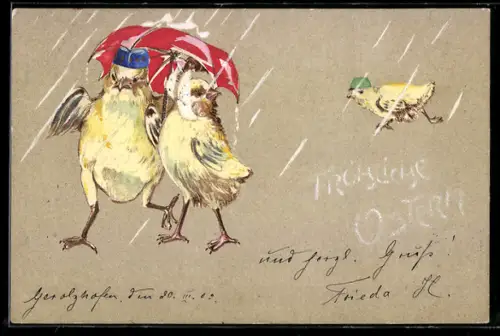 Fröhliche
Ostern
und herzl. Gruß!
Gerolzhofen, den 30. III. 02.
Frieda H.